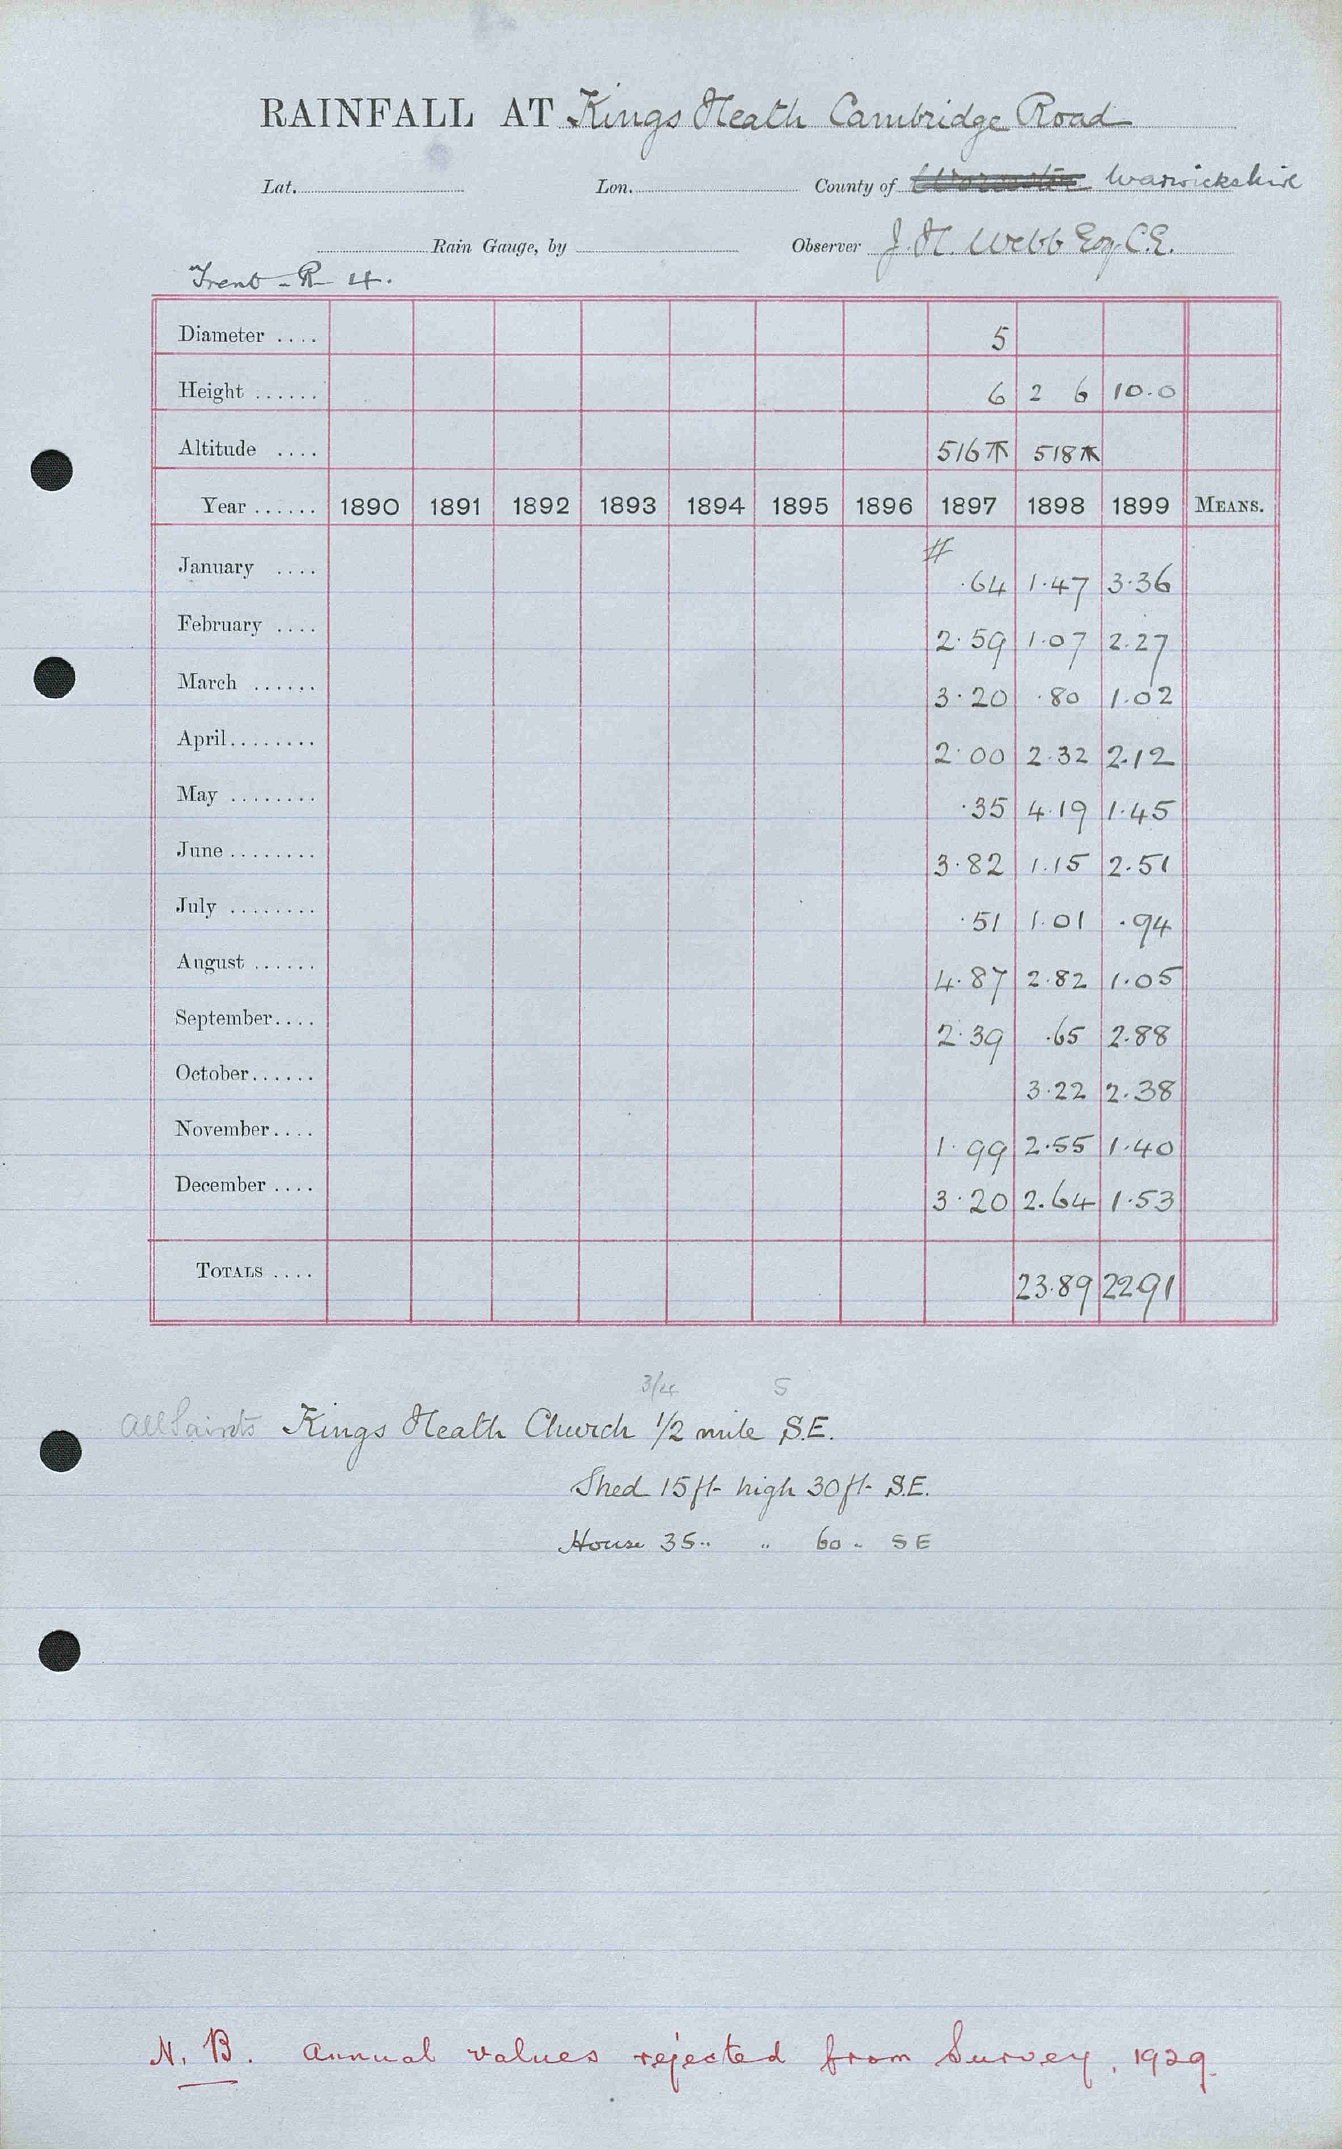 RAINFALL AT Kings Heath Cambridge Road
Lat. Lon. County of Worcester Warwickshire
Rain Gauge, by Observer J. H. Webb Esq C.E.
Trent - R 4.
Diameter .... 5
Height ...... 6 2 6 10.0
Altitude .... 516 518
Year ...... 1890 1891 1892 1893 1894 1895 1896 1897 1898 1899 MEANS.
#
January .... .64 1.47 3.36
February .... 2.59 1.07 2.27
March ...... 3.20 .80 1.02
April........ 2.00 2.32 2.12
May ........ .35 4.19 1.45
June ........ 3.82 1.15 2.51
July ........ .51 1.01 .94
August ...... 4.87 2.82 1.05
September.... 2.39 .65 2.88
October...... 3.22 2.38
November.... 1.99 2.55 1.40
December .... 3.20 2.64 1.53
TOTALS .... 23.89 22.91
3/4 S
All Saints Kings Heath Church 1/2 mile S.E.
Shed 15 ft high 30 ft S.E.
House 35 " " 60 " SE
N. B. Annual values rejected from Survey, 1929.